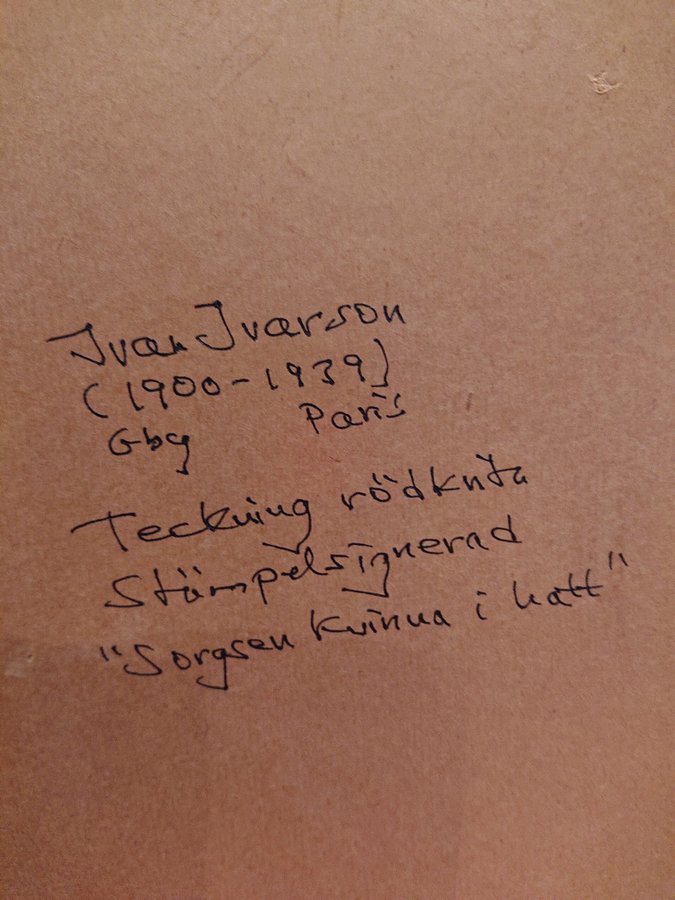 Ivan Ivarson
(1900-1939)
Gbg Paris
Teckning rödkrita
Stämpelsignerad
"Sorgsen kvinna i hatt"